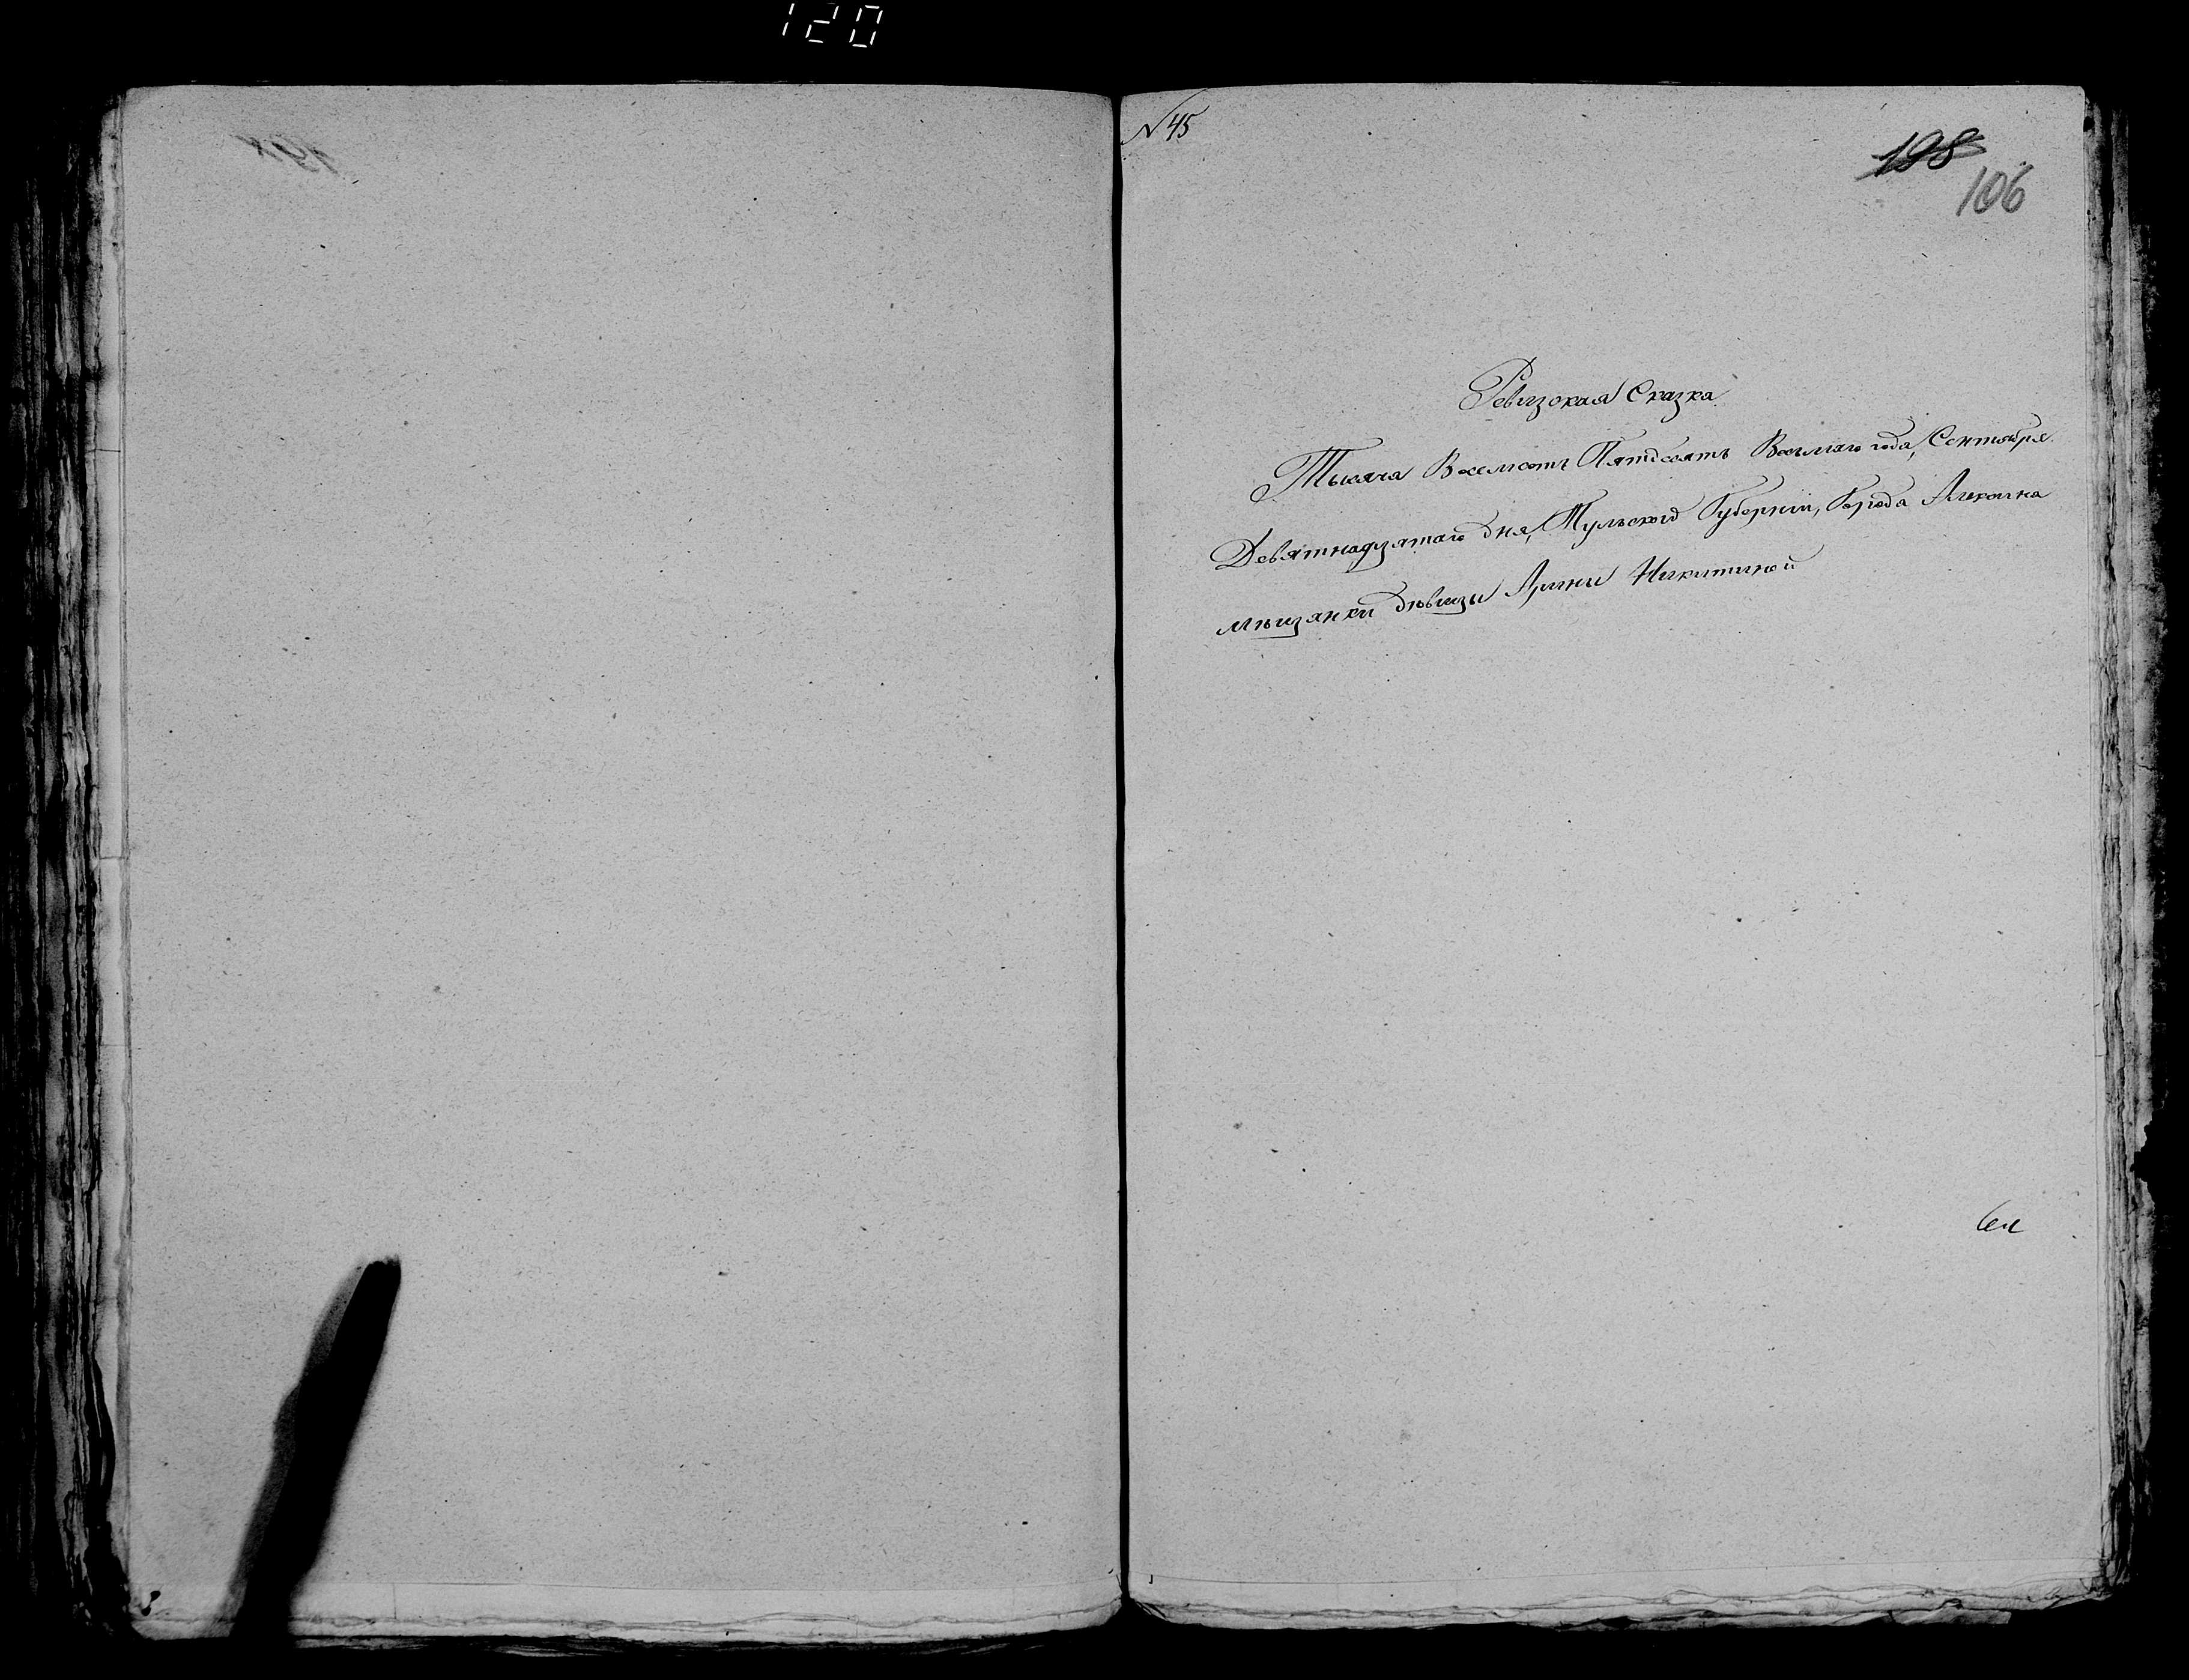 120
N 45
198
106
Ревизская Сказка
Тысяча Восемсотъ Пятдесятъ Восьмаго года, Сентября
Девятнадцатаго дня, Тульской Губерніи, Города Алексина
мѣщанки дѣвицы Арины Никитиной